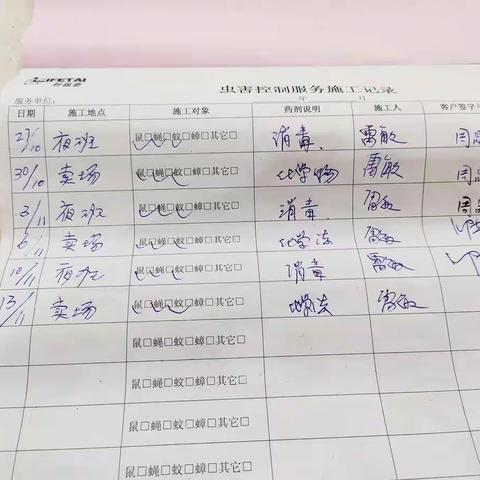 LIFETAI
虫害控制服务施工记录
服务单位: 年 月
日期 施工地点 施工对象 药剂说明 施工人 客户签字
27/10 夜班 鼠□蝇□蚊□蟑□其它□ 消毒.
30/10 卖场 鼠□蝇□蚊□蟑□其它□ 化学
3/11 夜班 鼠□蝇□蚊□蟑□其它□ 消毒.
6/11 卖场 鼠□蝇□蚊□蟑□其它□ 化学法
10/11 夜班 鼠□蝇□蚊□蟑□其它□ 消毒
13/11 卖场 鼠□蝇□蚊□蟑□其它□ 化学法
鼠□蝇□蚊□蟑□其它□
鼠□蝇□蚊□蟑□其它□
鼠□蝇□蚊□蟑□其它□
鼠□蝇□蚊□蟑□其它□